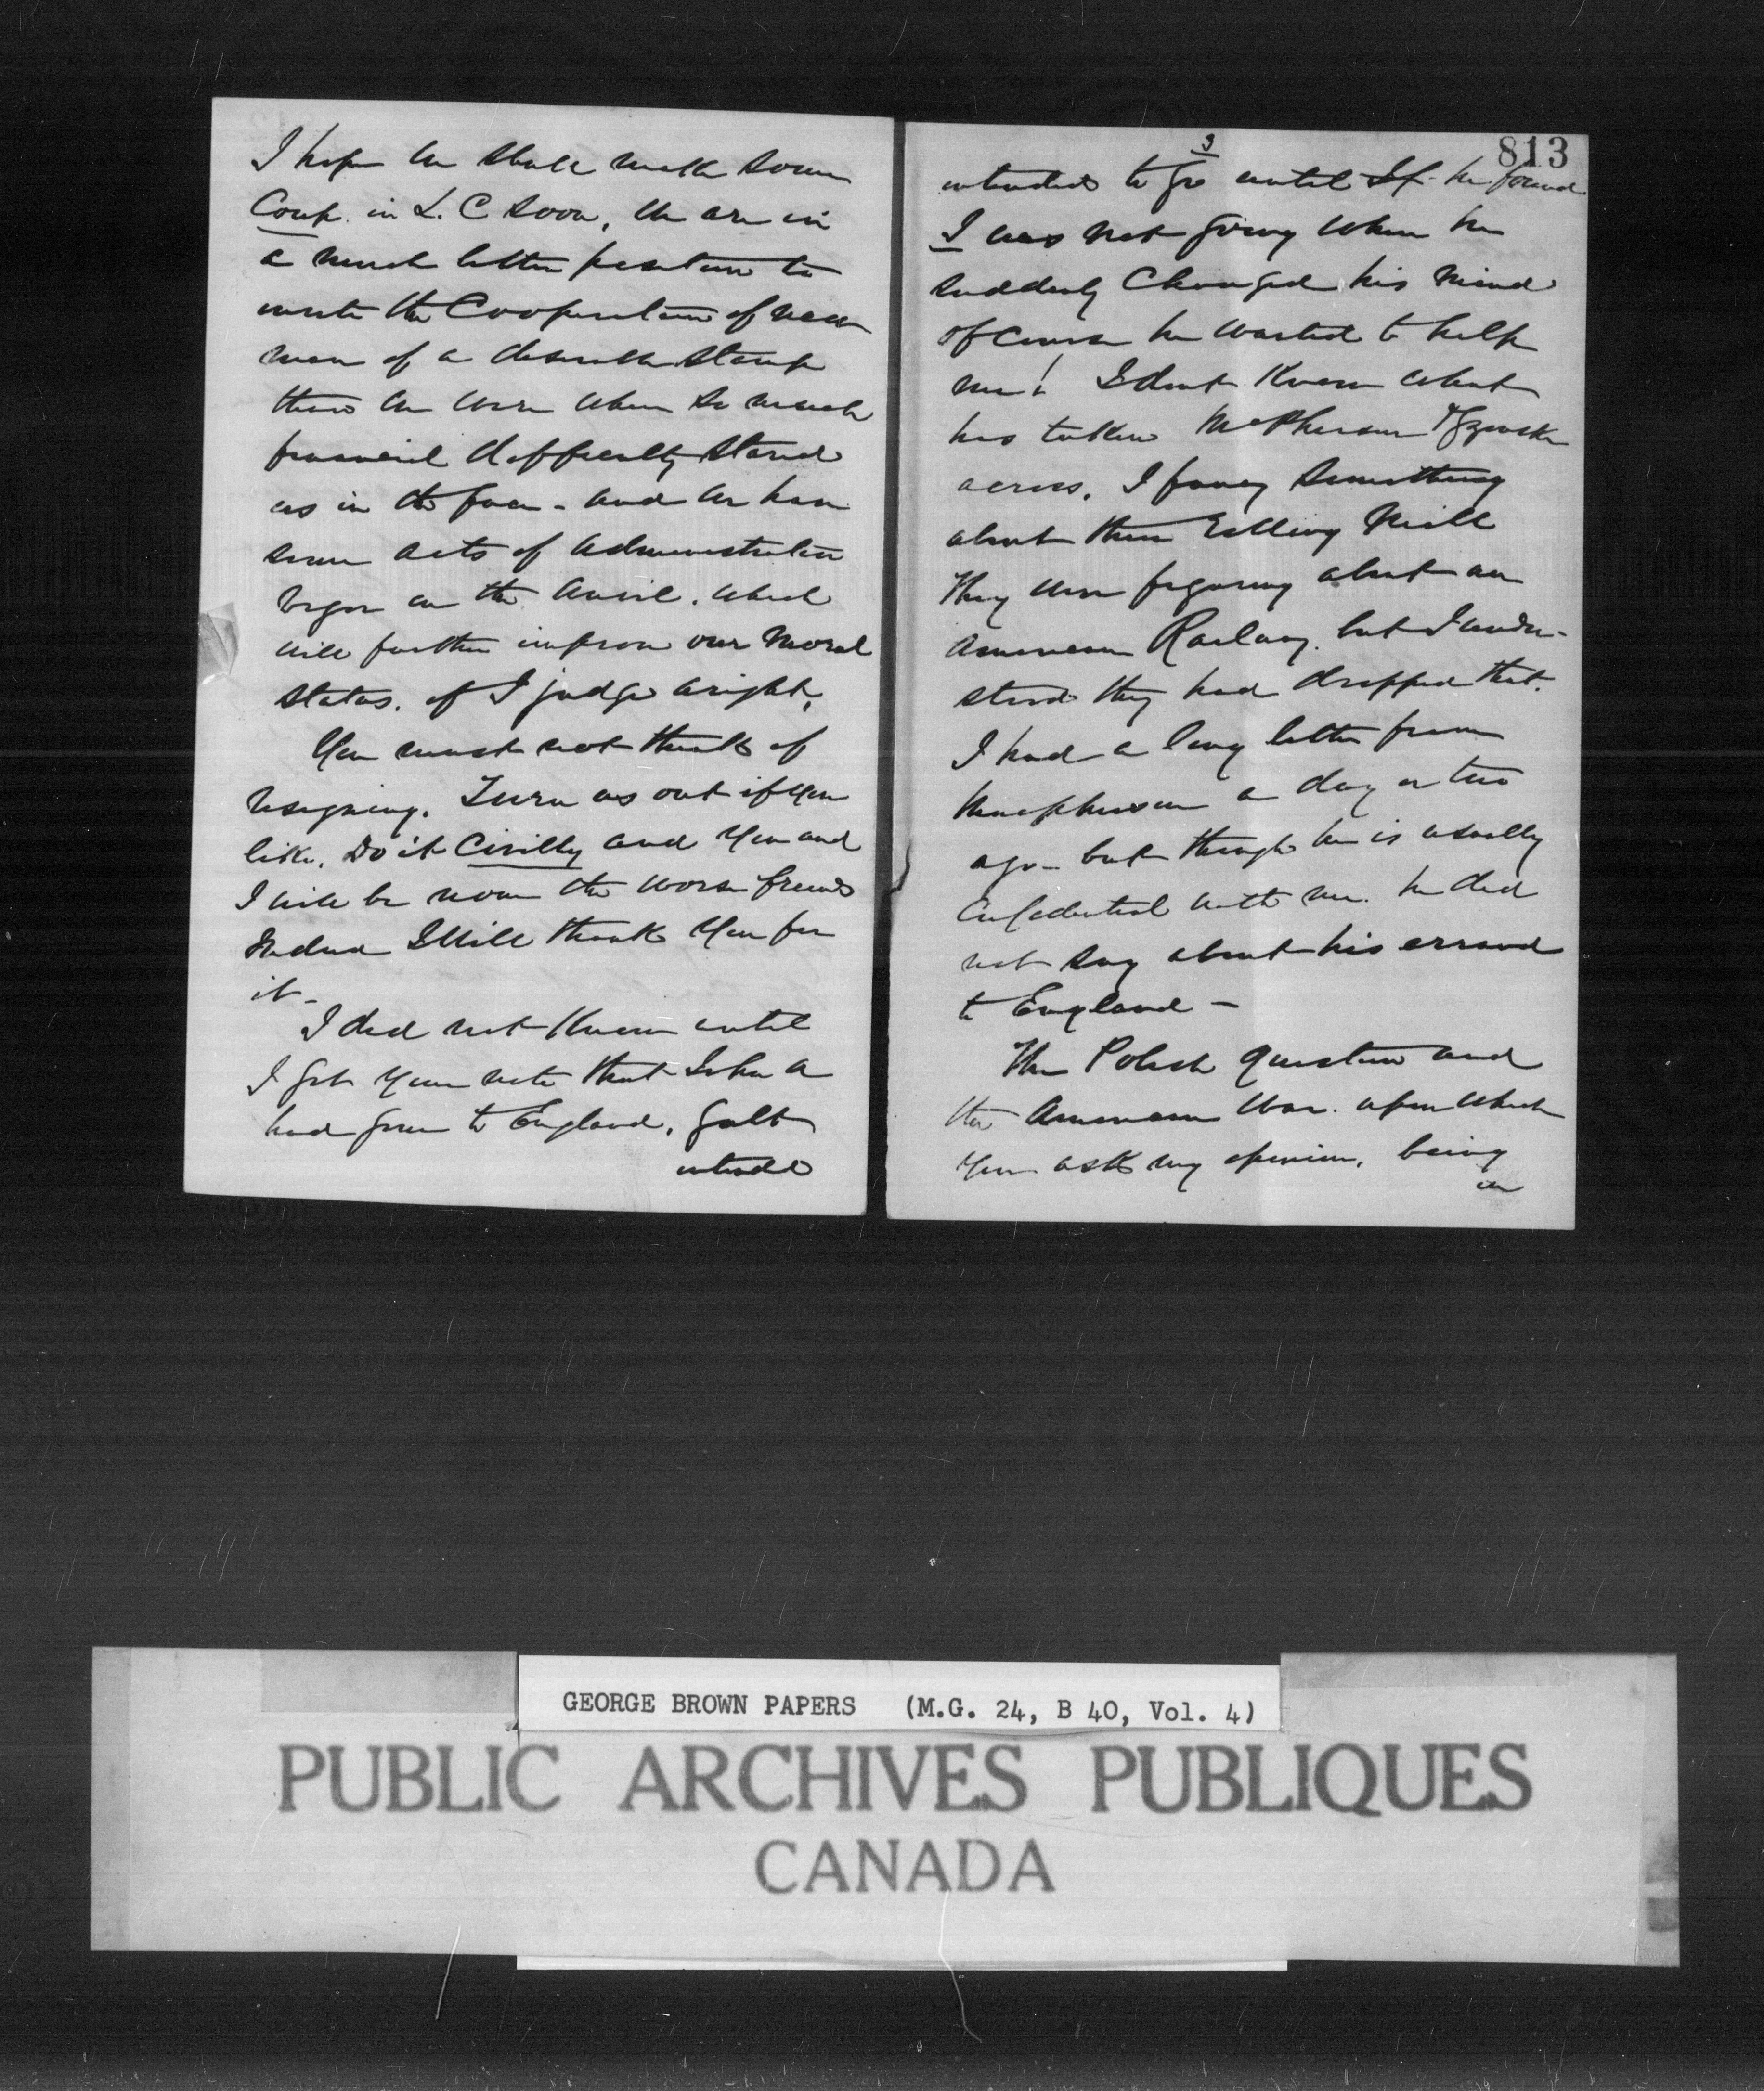 I hope we shall make some
Coup. in L. C soon, We are in
a much better position to
invite the Cooperation of new
men of a desirable stamp
than we were when so much
financial difficulty stared
us in the face - and we have
some acts of administration
begun on the anvil. which
will further improve our moral
status. if I judge aright,
You must not think of
resigning. Turn us out if you
like. Do it Civilly and you and
I will be none the worse friends
Indeed I will thank you for
it -
I did not know until
I got your note that John A
had gone to England, Galt
intended
813
3
intended to go until he found
I was not going when he
suddenly Changed his mind
Of course he wanted to help
me! I dont know what
has taken McPherson & Gzowski
across. I fancy something
about their Rolling Mill
They were figuring about an
American Railway. but I under-
stood they had dropped that.
I had a long letter from
Macpherson a day or two
ago - but though he is usually
Confidential with me. he did
not say about his errand
to England -
The Polish question and
the American War. upon which
you ask my opinion, being
in
GEORGE BROWN PAPERS (M.G. 24, B 40, Vol. 4)
PUBLIC ARCHIVES PUBLIQUES
CANADA